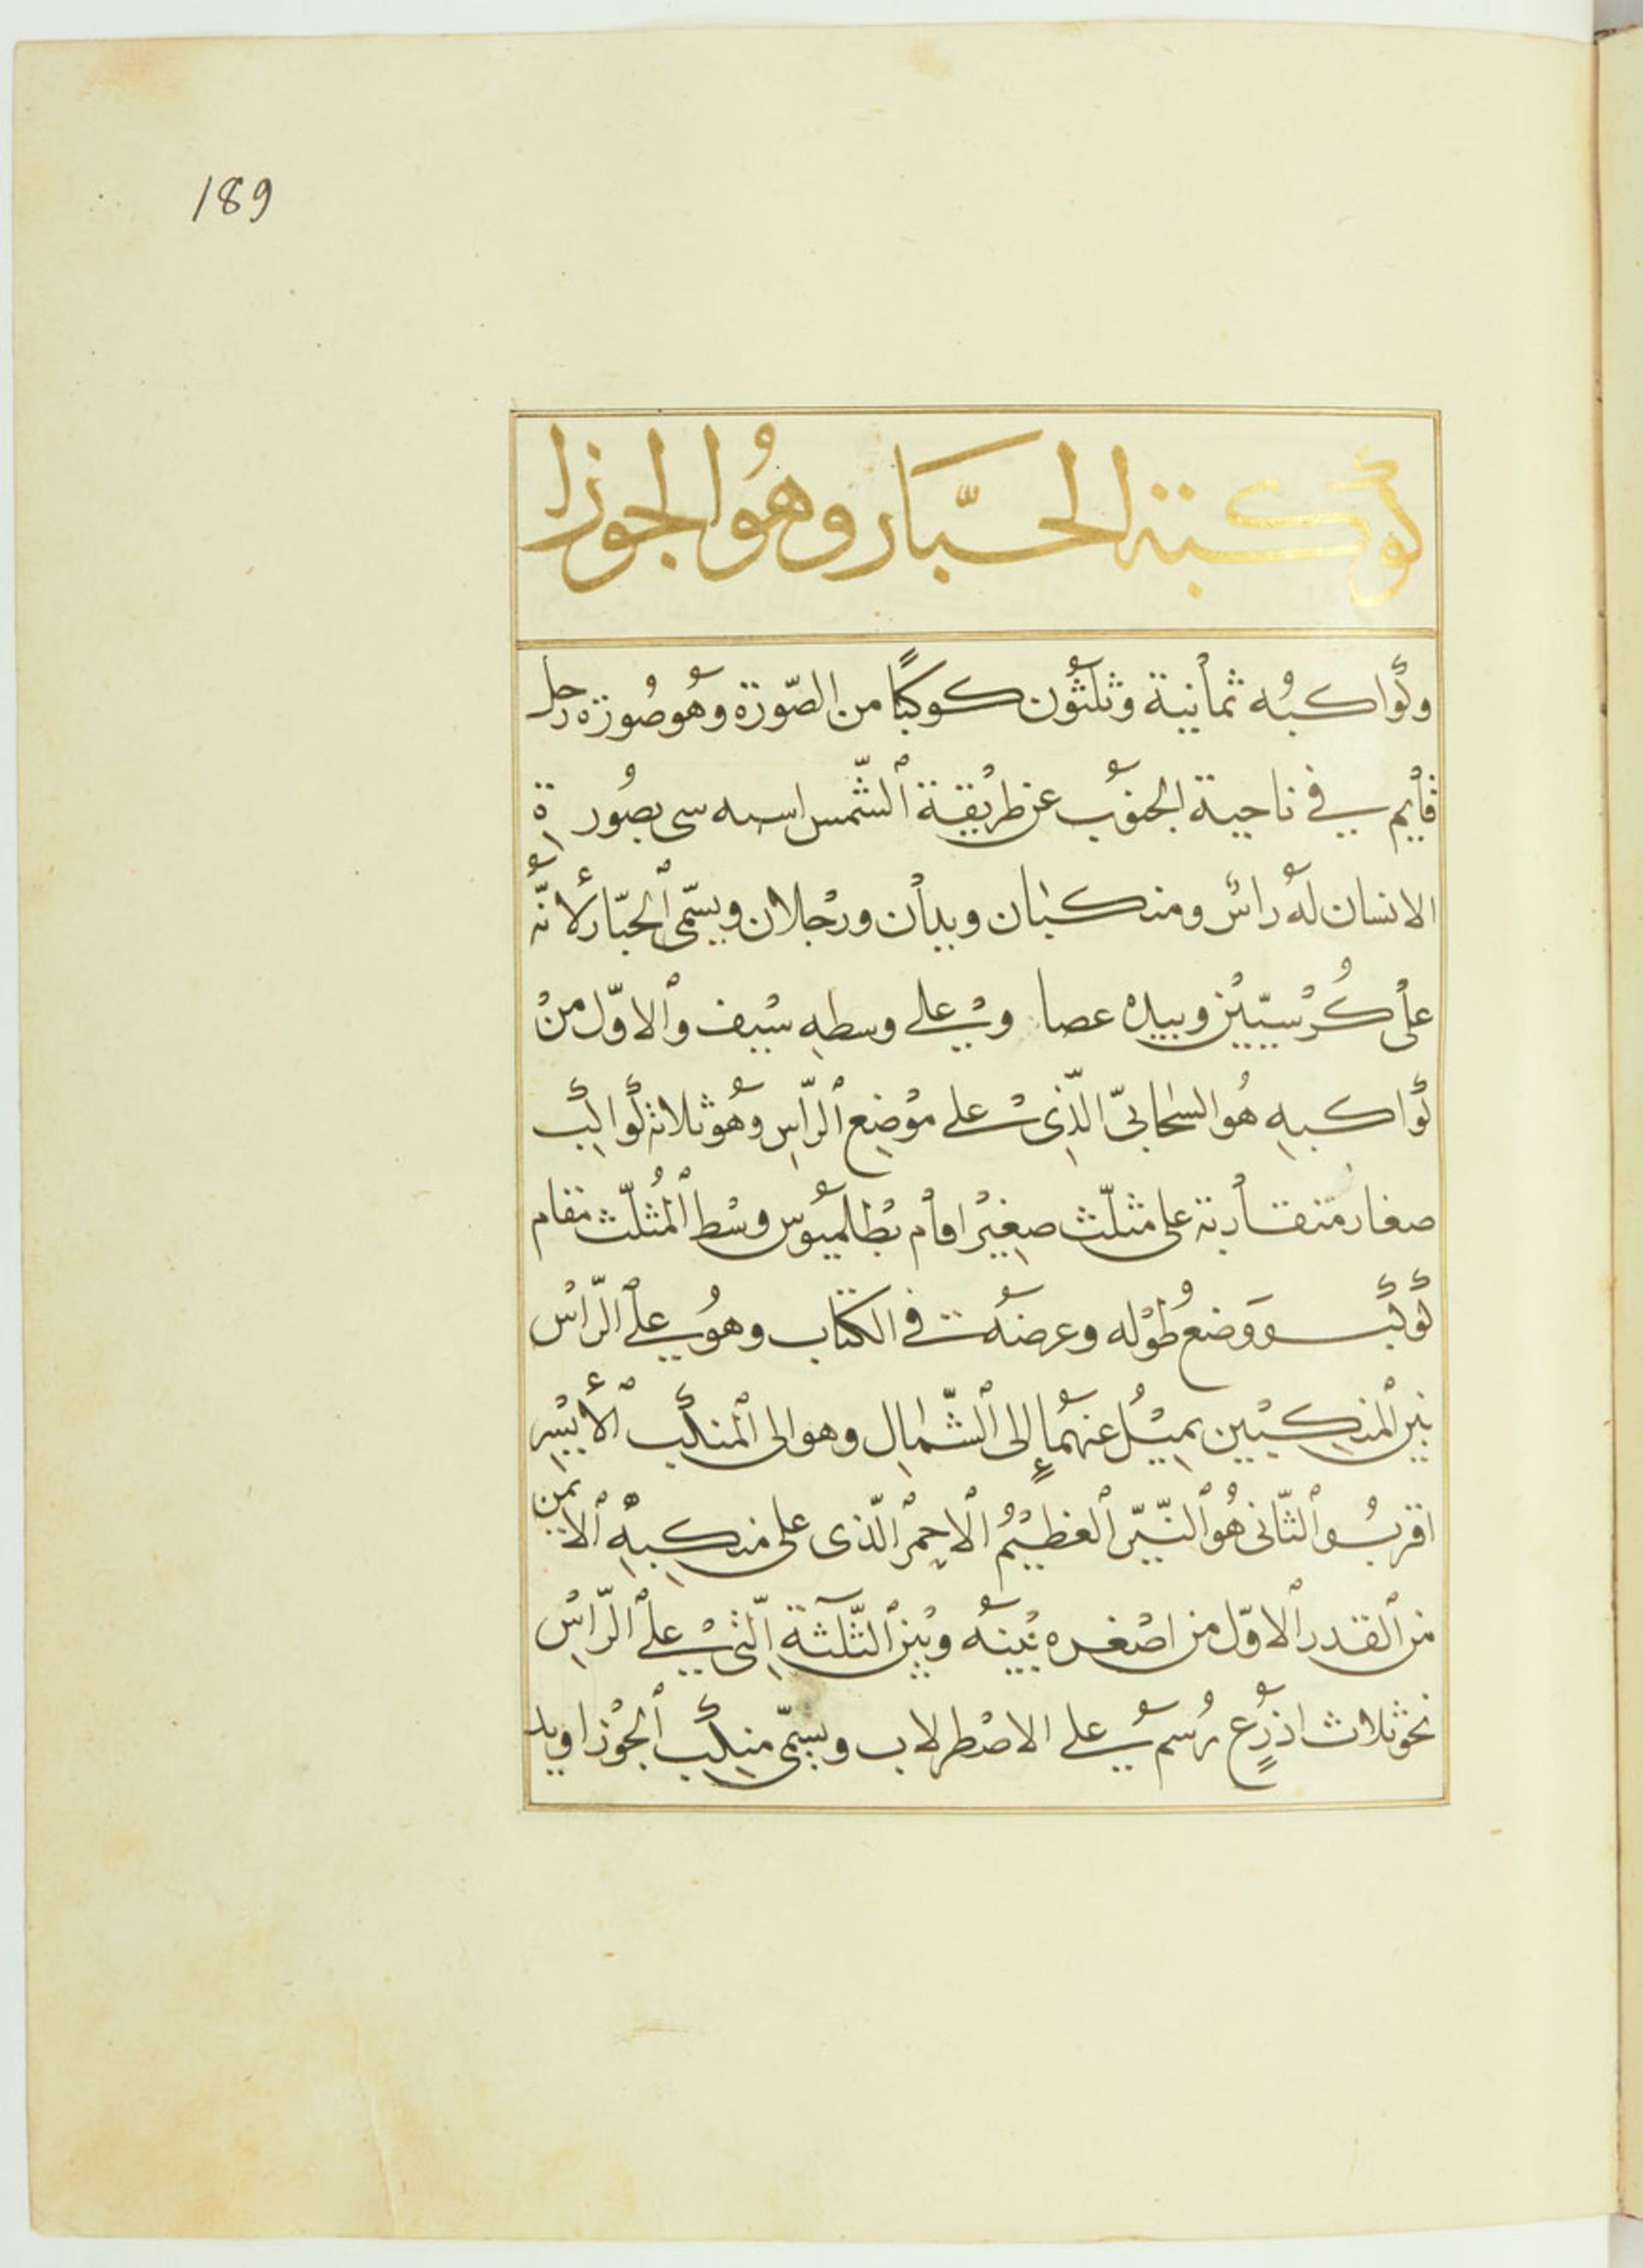 189
كوكبة الجبار وهو الجوزا
وكواكبه ثمانية وثلثون كوكبًا من الصّورة وهو صُورة رجل
قايم في ناحية الجنوب عن طريقة الشّمس اسبه سى بصُورة
الانسان له راسٌ ومنكبان ويدان ورجلان ويسمّى الجبّار لأنّه
على كُرسيّين وبيده عصا وعلى وسطه سيف والاوّل من
كواكبه هو السحابيّ الّذى على موضع الرّاس وهو ثلاثة كواكب
صغار متقاربة على مثلّث صغير اقام بطلميوس وسط المثلّث مقام
كوكب ووضع طوله وعرضه في الكتاب وهو على الرّاس
بين المنكبين يميل عنهما إلى الشّمال وهو الى المنكب الأيسر
اقرب والثّانى هو النّيّر العظيم الاحمر الّذى على منكبه الايمن
من القدر الاوّل من اصغره بينه وبين الثّلثة الّتى على الرّاس
نحو ثلاث اذرع رسم على الاصطرلاب ويسمّى منكب الجوزا ويد